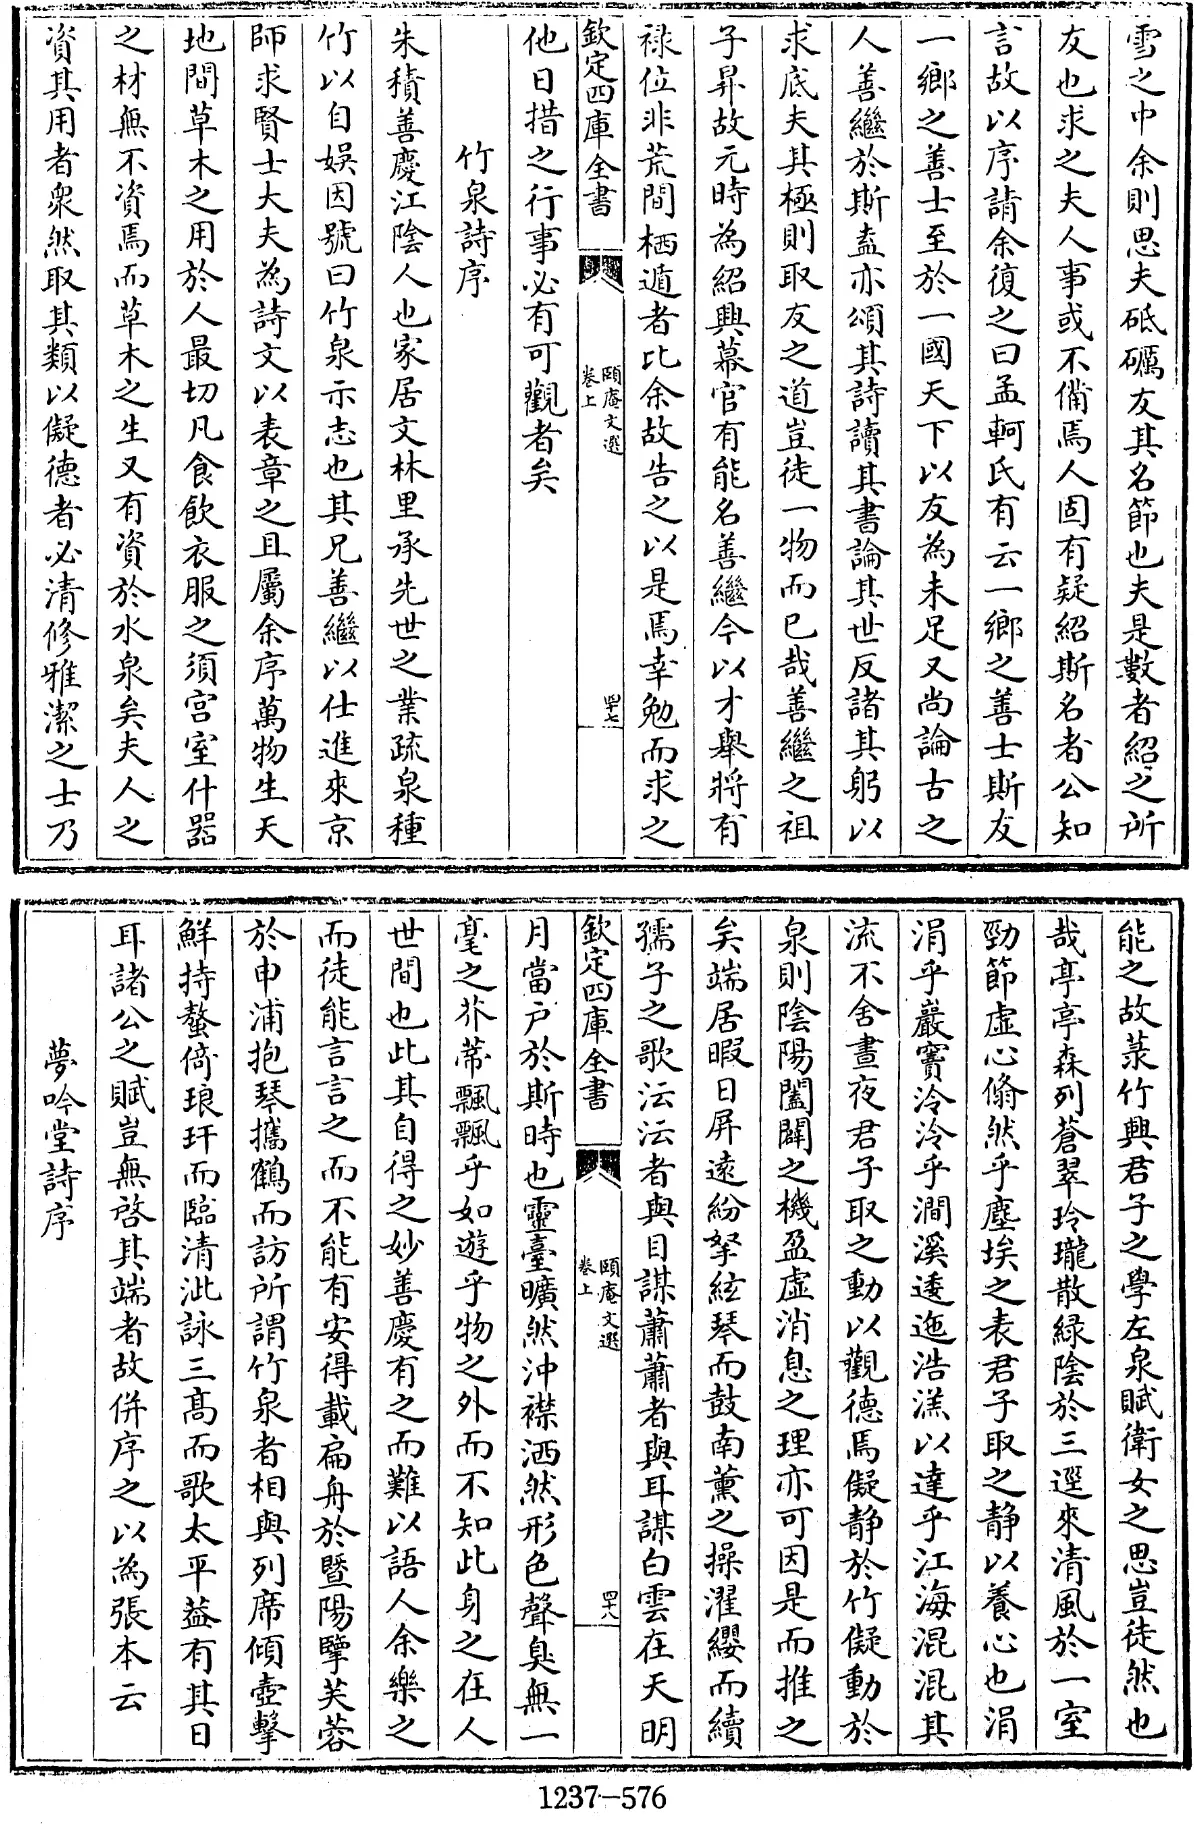 雪之中余則思夫砥礪友其名節也夫是數者紹之所
友也求之夫人事或不備焉人固有疑紹斯名者公知
言故以序請余復之曰孟軻氏有云一鄉之善士斯友
一鄉之善士至於一國天下以友為未足又尚論古之
人善繼於斯盍亦頌其詩讀其書論其世反諸其躬以
求底夫其極則取友之道豈徒一物而已哉善繼之祖
子昇故元時為紹興幕官有能名善繼今以才舉將有
祿位非荒間栖遁者比余故告之以是焉幸勉而求之
欽定四庫全書
頤庵文選
卷上
四十七
他日措之行事必有可觀者矣
竹泉詩序
朱積善慶江陰人也家居文林里承先世之業疏泉種
竹以自娛因號曰竹泉示志也其兄善繼以仕進來京
師求賢士大夫為詩文以表章之且屬余序萬物生天
地間草木之用於人最切凡食飲衣服之須宮室什器
之材無不資焉而草木之生又有資於水泉矣夫人之
資其用者衆然取其類以儗德者必清修雅潔之士乃
能之故菉竹興君子之學左泉賦衛女之思豈徒然也
哉亭亭森列蒼翠玲瓏散綠陰於三逕來清風於一室
勁節虛心翛然乎塵埃之表君子取之靜以養心也涓
涓乎巖竇泠泠乎澗溪逶迤浩漾以達乎江海混混其
流不舍晝夜君子取之動以觀德焉儗靜於竹儗動於
泉則陰陽闔闢之機盈虛消息之理亦可因是而推之
矣端居暇日屏遠紛拏絃琴而鼓南薰之操濯纓而續
孺子之歌沄沄者與目謀蕭蕭者與耳謀白雲在天明
欽定四庫全書
頤庵文選
卷上
四十八
月當戶於斯時也靈臺曠然沖襟洒然形色聲臭無一
毫之芥蔕飄飄乎如遊乎物之外而不知此身之在人
世間也此其自得之妙善慶有之而難以語人余樂之
而徒能言言之而不能有安得載扁舟於暨陽擥芙蓉
於申浦抱琴攜鶴而訪所謂竹泉者相與列席傾壺擊
鮮持螯倚琅玕而臨清泚詠三髙而歌太平葢有其日
耳諸公之賦豈無啓其端者故併序之以為張本云
夢吟堂詩序
1237—576